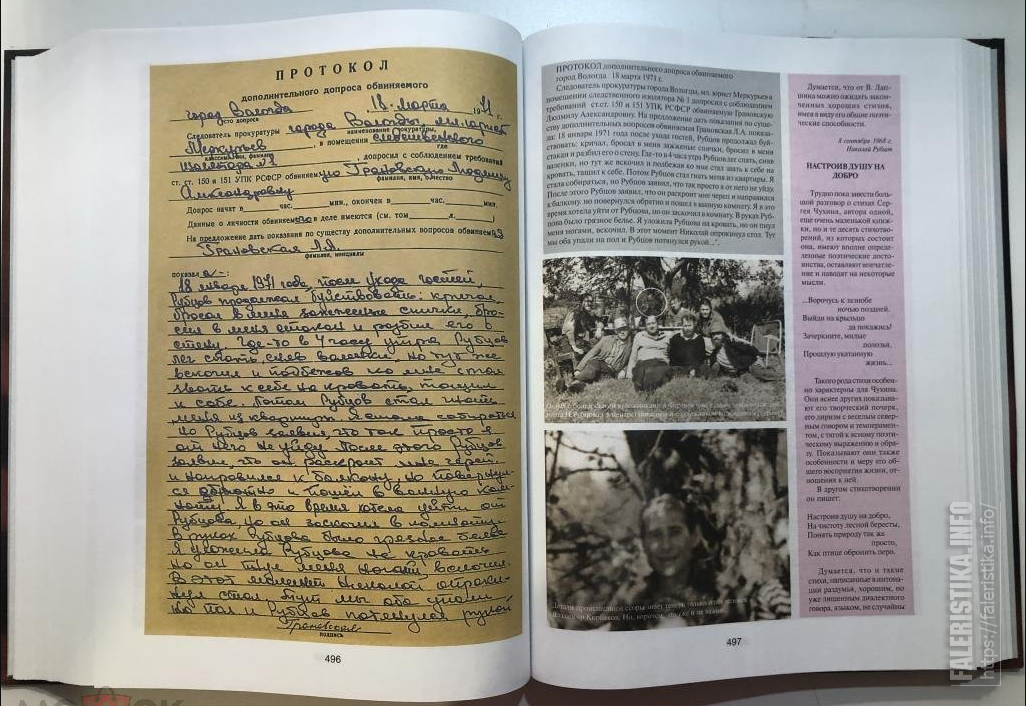 ПРОТОКОЛ
дополнительного допроса обвиняемого
город Вологда 18 марта 1971
место допроса
Следователь прокуратуры города Вологды, мл. юрист
наименование прокуратуры,
Меркурьев, в помещении следственного
классный чин, фамилия где
изолятора №1, допросил с соблюдением требований
ст. ст. 150 и 151 УПК РСФСР обвиняемую Грановскую Людмилу
фамилия, имя, отчество
Александровну
Допрос начат в час. мин., окончен в час. мин.
Данные о личности обвиняемой в деле имеются (см. том л. )
На предложение дать показания по существу дополнительных вопросов обвиняемая
Грановская Л.А.
фамилия, инициалы
показала:
18 января 1971 года, после ухода гостей,
Рубцов продолжал буйствовать: кричал,
бросал в меня зажженные спички, бро-
сил в меня стакан и разбил его о
стену. Где-то в 4 часа утра Рубцов
лег спать, сняв валенки. Но тут же
вскочил и подбежав ко мне стал
звать к себе на кровать, тащил
к себе. Потом Рубцов стал гнать
меня из квартиры. Я стала собираться,
но Рубцов заявил, что так просто я
от него не уйду. После этого Рубцов
заявил, что он раскроит мне череп
и направился к балкону, но повернул-
ся обратно и пошел в ванную ком-
нату. Я в это время хотела уйти от
Рубцова, но он заскочил в комнату.
В руках Рубцова было грязное белье.
Я уложила Рубцова на кровать,
но он пнул меня ногами, вскочил.
В этот момент Николай опроки-
нул стол. Тут мы оба упали
на пол и Рубцов потянулся рукой
Грановская
подпись
496
ПРОТОКОЛ дополнительного допроса обвиняемого
город Вологда 18 марта 1971 г.
Следователь прокуратуры города Вологды, мл. юрист Меркурьев в
помещении следственного изолятора № 1 допросил с соблюдением
требований ст.ст. 150 и 151 УПК РСФСР обвиняемую Грановскую
Людмилу Александровну. На предложение дать показания по суще-
ству дополнительных вопросов обвиняемая Грановская Л.А. пока-
зала: 18 января 1971 года после ухода гостей, Рубцов продолжал буй-
ствовать: кричал, бросал в меня зажженные спички, бросил в меня
стакан и разбил его о стену. Где-то в 4 часа утра Рубцов лег спать, сняв
валенки, но тут же вскочил и подбежав ко мне стал звать к себе на
кровать, тащил к себе. Потом Рубцов стал гнать меня из квартиры. Я
стала собираться, но Рубцов заявил, что так просто я от него не уйду.
После этого Рубцов заявил, что он раскроит мне череп и направился
к балкону, но повернулся обратно и пошел в ванную комнату. Я в это
время хотела уйти от Рубцова, но он заскочил в комнату. В руках Руб-
цова было грязное белье. Я уложила Рубцова на кровать, но он пнул
меня ногами, вскочил. В этот момент Николай опрокинул стол. Тут
мы оба упали на пол и Рубцов потянулся рукой...".
Детали происшедшей ссоры знает теперь только один человек
Но, впрочем,
497
Думается, что от В. Лап-
шина можно ожидать закон-
ченных хороших стихов,
имея в виду его общие поэти-
ческие способности.
8 сентября 1968 г.
Николай Рубцов
НАСТРОИВ ДУШУ НА
ДОБРО
Трудно пока завести боль-
шой разговор о стихах Сер-
гея Чухина, автора одной,
еще очень маленькой книж-
ки, но и те десять стихотво-
рений, из которых состоит
она, имеют вполне опреде-
ленные поэтические досто-
инства, оставляют впечатле-
ние и наводят на некоторые
мысли.
...Ворочусь к зазнобе
ночью поздней.
Выйди на крыльцо
да покажись!
Зачеркните, милые
полозья,
Прошлую укатанную
жизнь...
Такого рода стихи особен-
но характерны для Чухина.
Они яснее других показыва-
ют его творческий почерк,
его лиризм с веселым север-
ным говором и темперамен-
том, с тягой к ясному поэти-
ческому выражению и обра-
зу. Показывают они также
особенности и меру его об-
щего восприятия жизни, от-
ношения к ней.
В другом стихотворении
он пишет:
Настроив душу на добро,
На чистоту лесной бересты,
Понять природу так же
просто,
Как птице обронить перо.
Думается, что и такие
стихи, написанные в интона-
ции раздумья, хорошим, но
уже лишенным диалектного
говора, языком, не случайны
FALERISTIKA.INFO
https://faleristika.info/